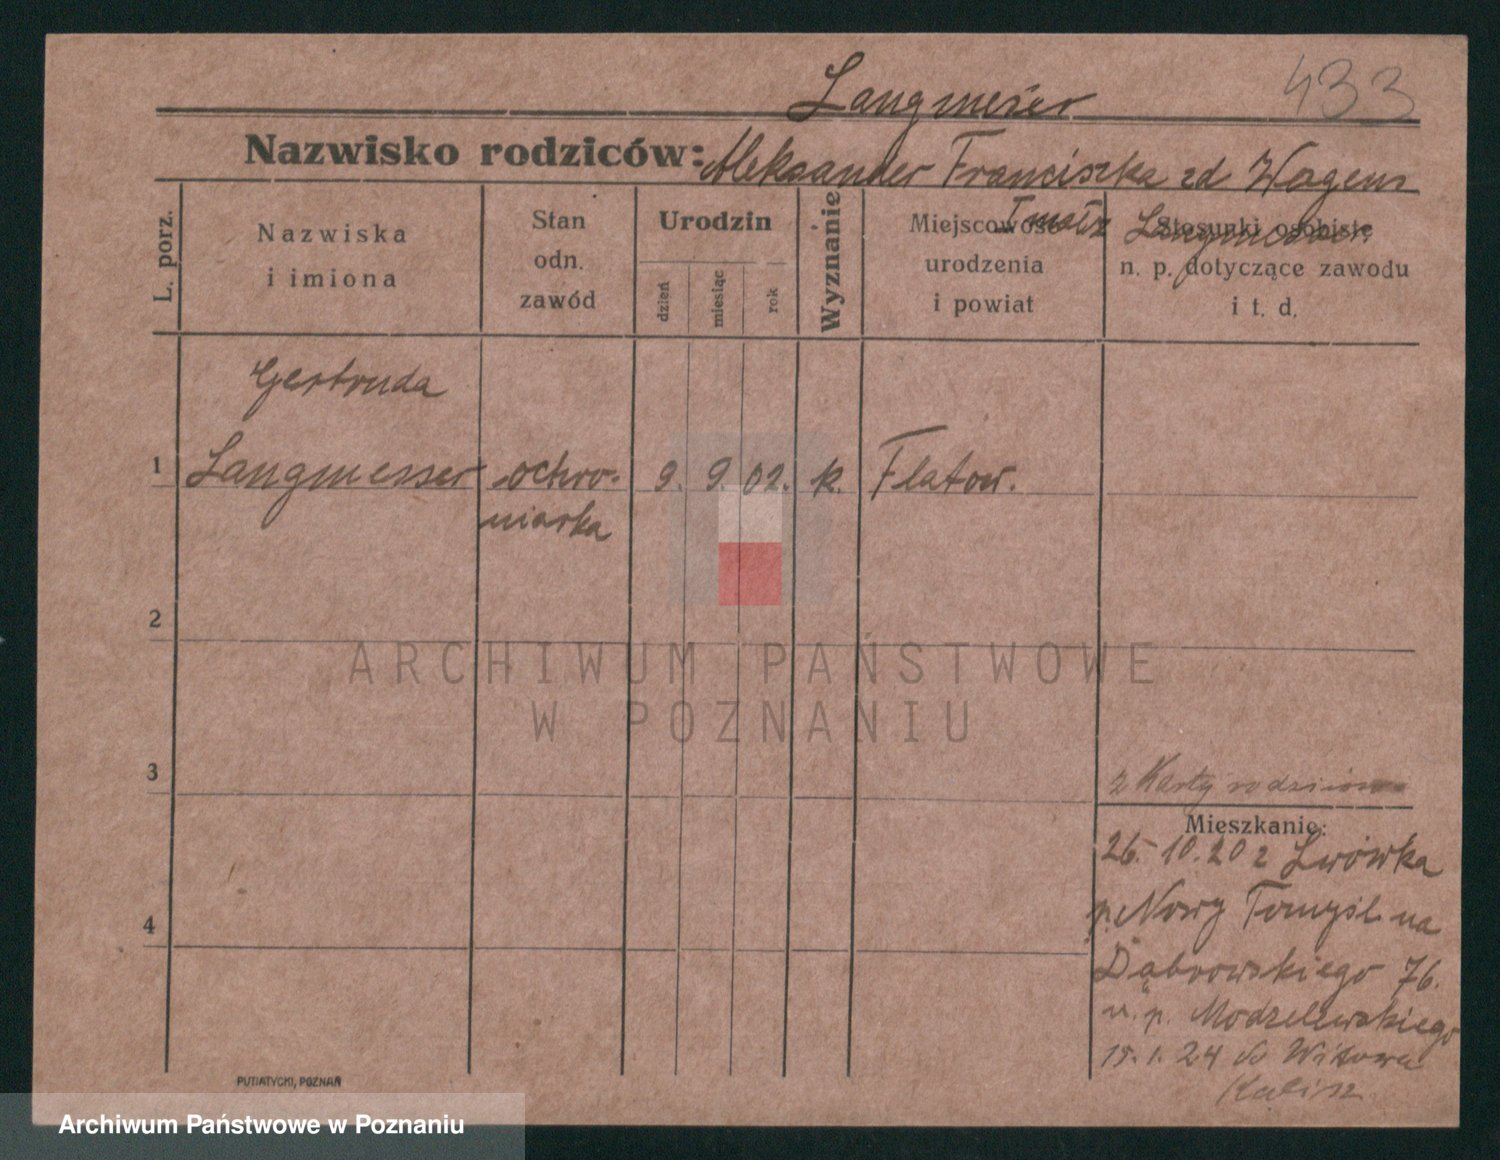 433
Langmesser
Nazwisko rodziców: Aleksander Franciszka zd Wagenz
L. porz.
Nazwiska
i imiona
Stan
odn.
zawód
Urodzin
dzień
miesiąc
rok
Wyznanie
Miejscowość
urodzenia
i powiat
Stosunki osobiste
n. p. dotyczące zawodu
i t. d.
Langmesser
Gertruda
1 Langmesser ochro- 9. 9. 02. k. Flatow.
niarka
2
3
4
z Karty
Mieszkanie:
26.10.20 z Lwówka
p. Nowy Tomyśl na
Dąbrowskiego 76.
u. p. Modzelewskiego
15.1.24 do Witowa
Kalisz
PUTIATYCKI, POZNAŃ
ARCHIWUM PAŃSTWOWE
W POZNANIU
Archiwum Państwowe w Poznaniu